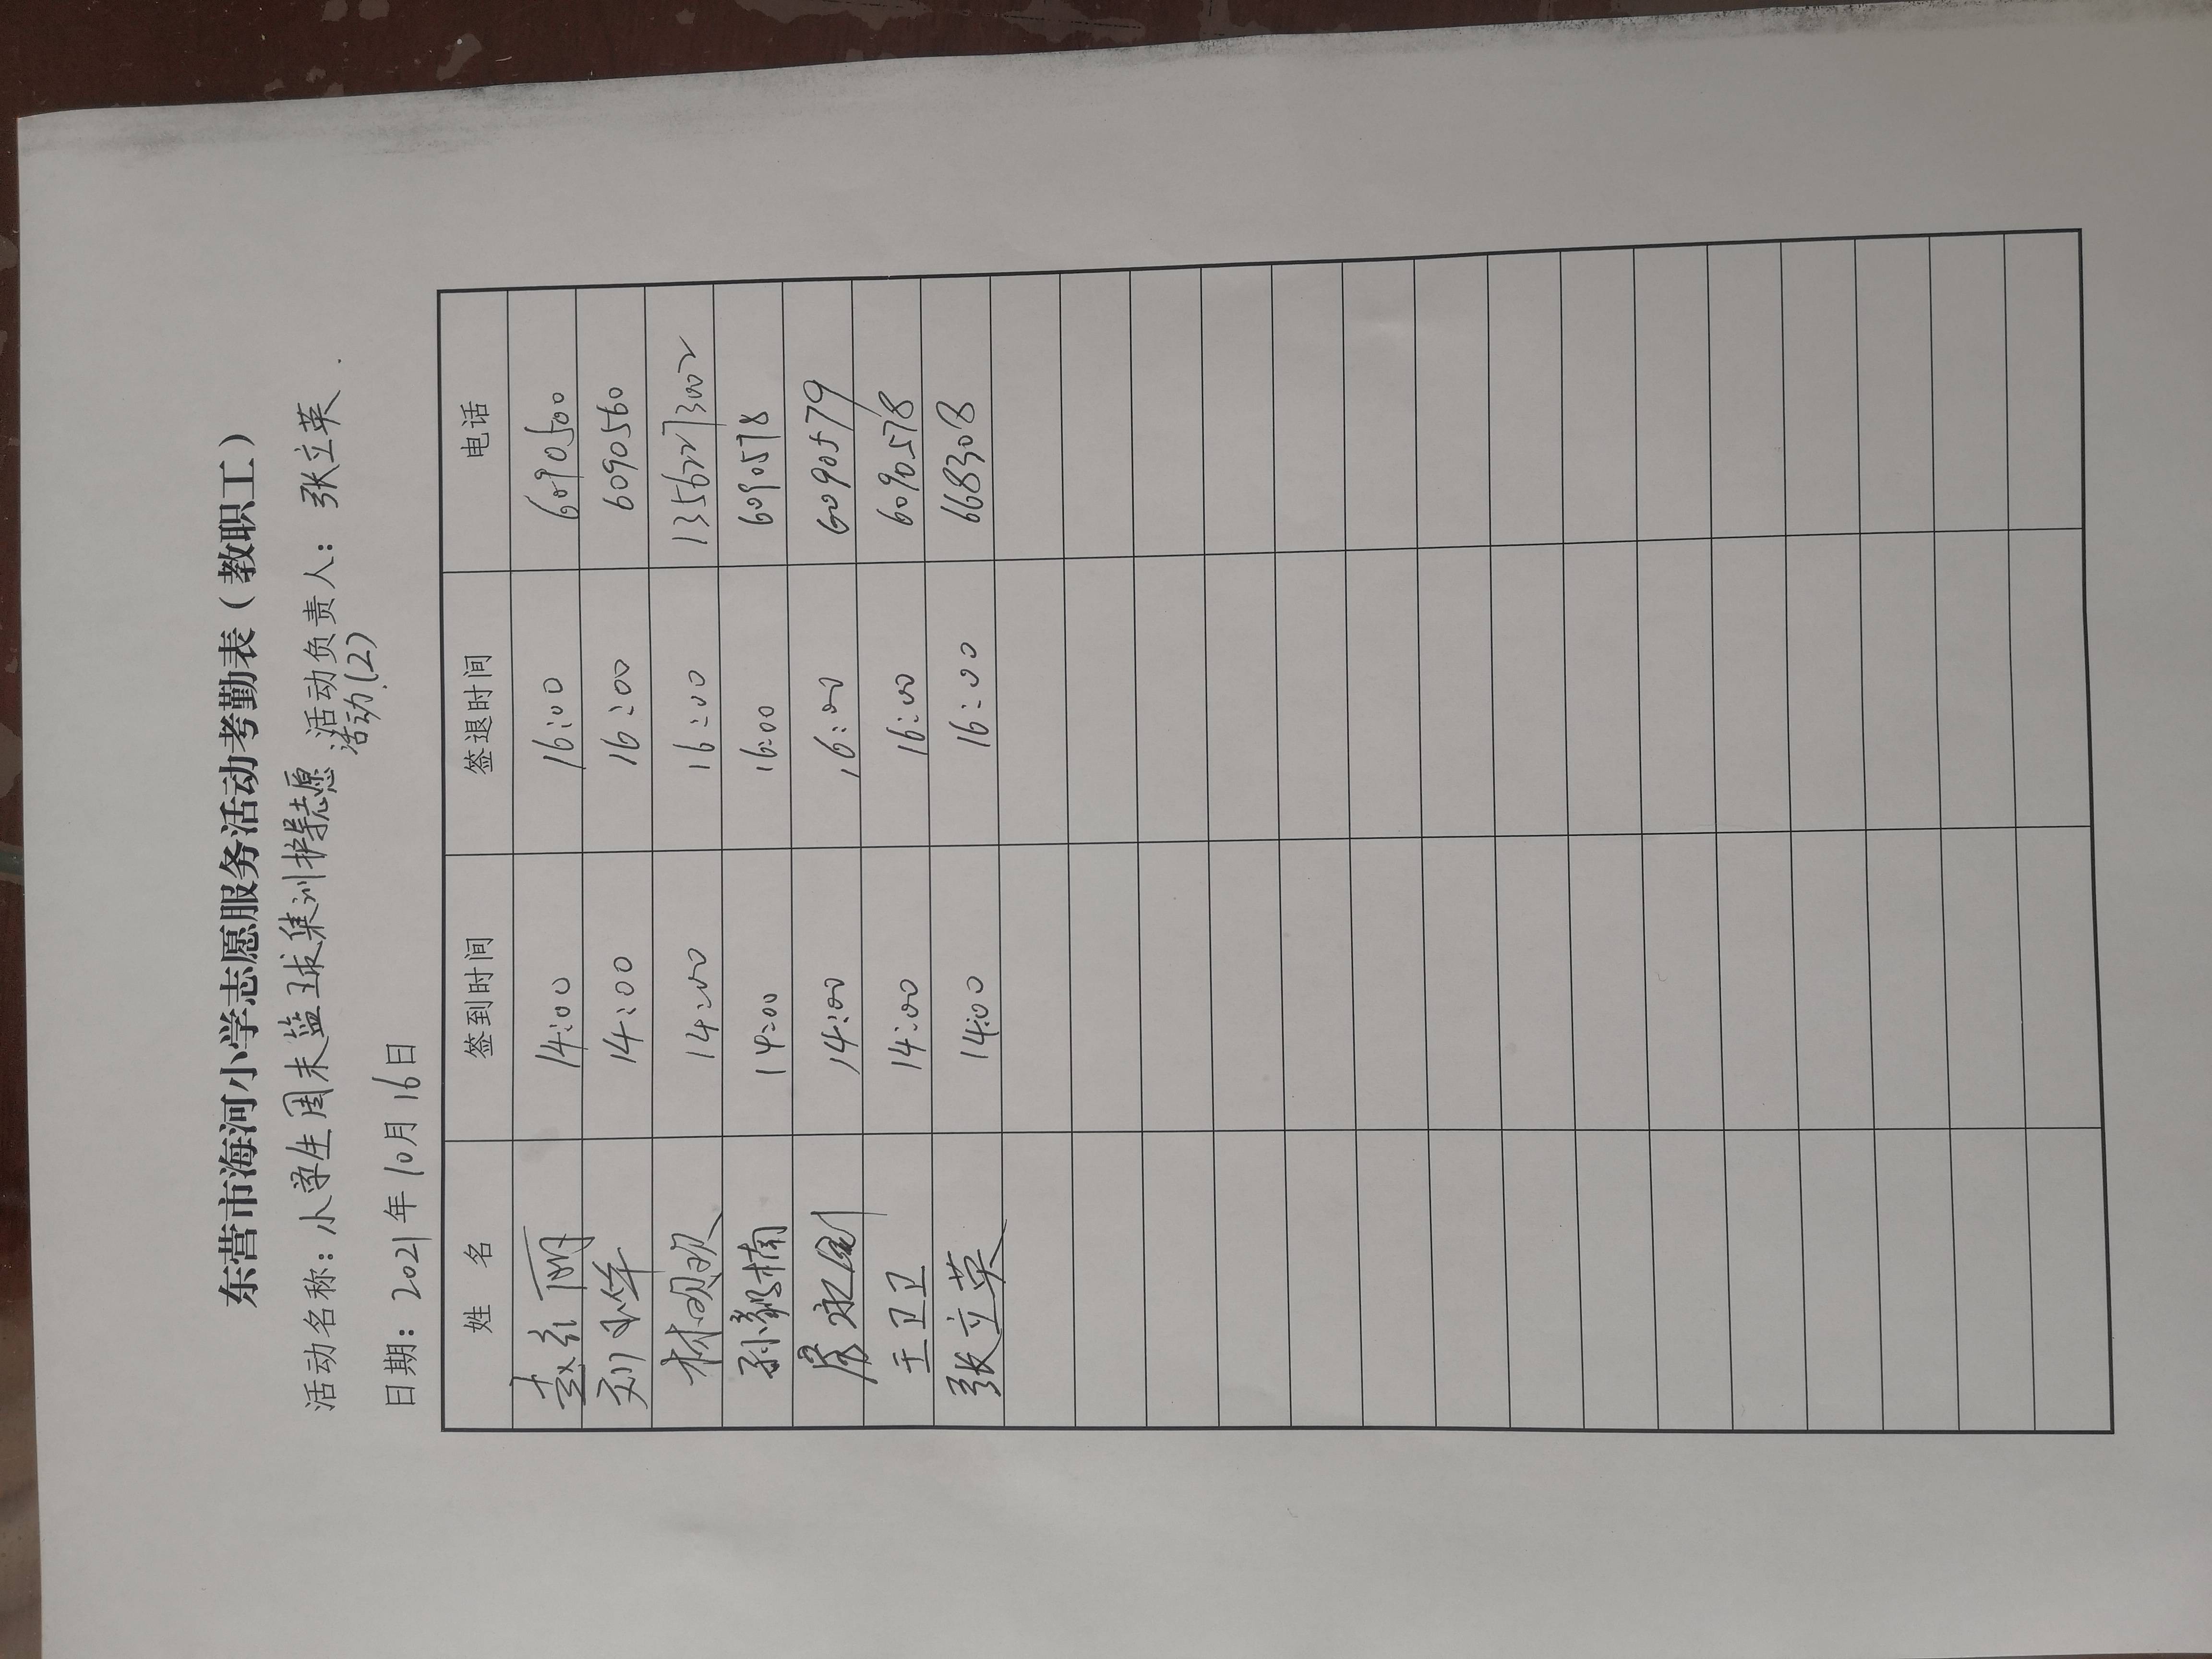 东营市海河小学志愿服务活动考勤表（教职工）
活动名称：小学生周末篮球集训指导志愿活动(2) 活动负责人：张立英
日期：2021年10月16日
姓 名 签到时间 签退时间 电话
赵红丽 14:00 16:00 6090500
刘 14:00 16:00 6090560
林 14:00 16:00 13562273002
孙楠 14:00 16:00 6090578
永刚 14:00 16:00 6090579
王卫卫 14:00 16:00 6090578
张立英 14:00 16:00 6683308